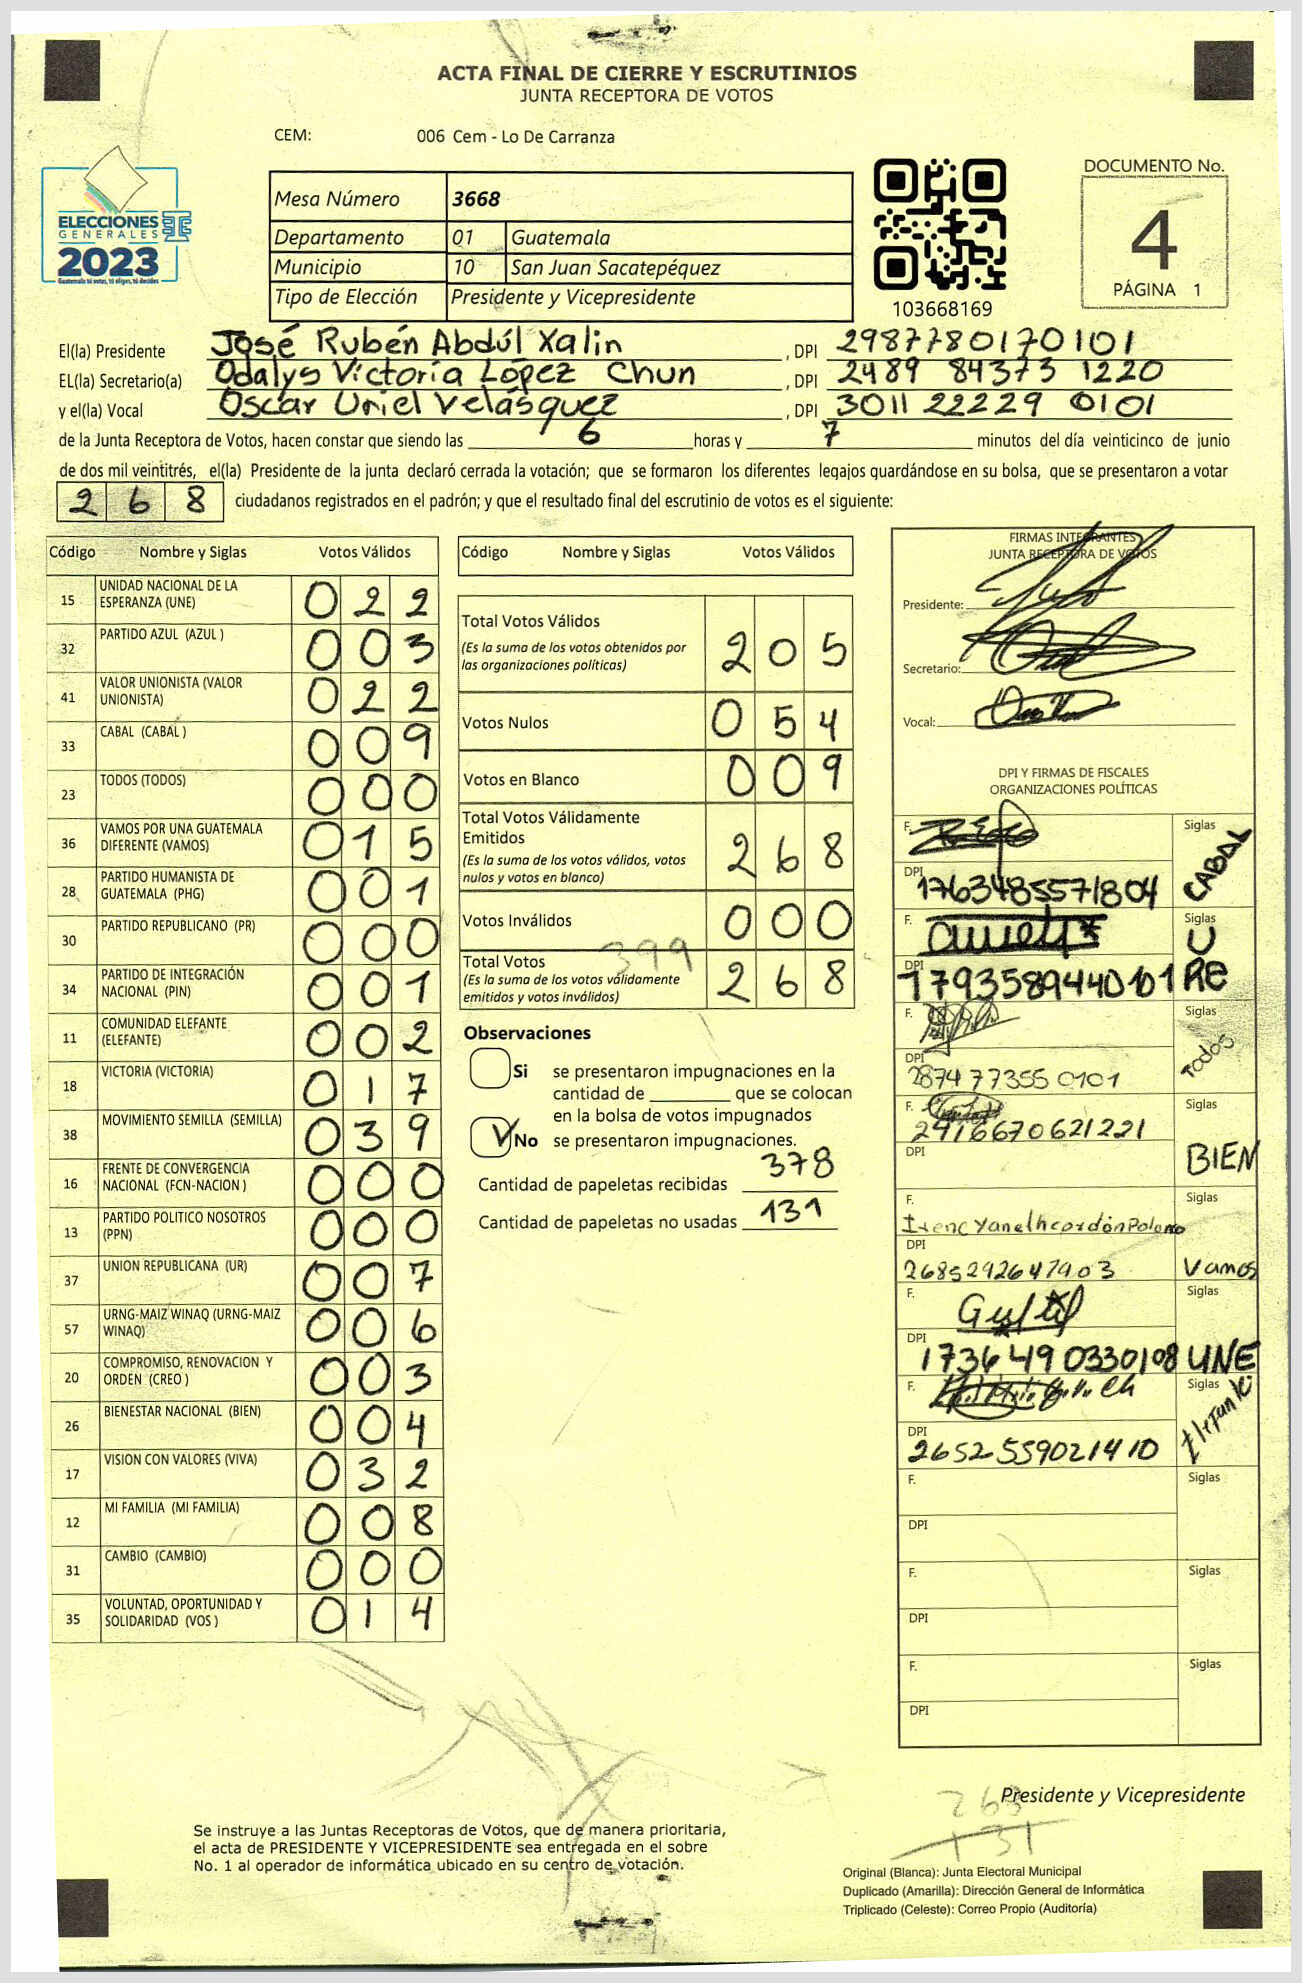 ACTA FINAL DE CIERRE Y ESCRUTINIOS
JUNTA RECEPTORA DE VOTOS
CEM: 006 Cem - Lo De Carranza
ELECCIONES
GENERALES
2023
Guatemala tú votas, tú eliges, tú decides
Mesa Número 3668
Departamento 01 Guatemala
Municipio 10 San Juan Sacatepéquez
Tipo de Elección Presidente y Vicepresidente
103668169
DOCUMENTO No.
4
PÁGINA 1
El(la) Presidente José Rubén Abdúl Xalin , DPI 2987780170101
EL(la) Secretario(a) Odalys Victoria López Chun , DPI 2489 84373 1220
y el(la) Vocal Oscar Uriel Velásquez , DPI 3011 22229 0101
de la Junta Receptora de Votos, hacen constar que siendo las 6 horas y 7 minutos del día veinticinco de junio
de dos mil veintitrés, el(la) Presidente de la junta declaró cerrada la votación; que se formaron los diferentes legajos guardándose en su bolsa, que se presentaron a votar
268 ciudadanos registrados en el padrón; y que el resultado final del escrutinio de votos es el siguiente:
Código Nombre y Siglas Votos Válidos
15 UNIDAD NACIONAL DE LA ESPERANZA (UNE) 022
32 PARTIDO AZUL (AZUL ) 003
41 VALOR UNIONISTA (VALOR UNIONISTA) 022
33 CABAL (CABAL ) 009
23 TODOS (TODOS) 000
36 VAMOS POR UNA GUATEMALA DIFERENTE (VAMOS) 015
28 PARTIDO HUMANISTA DE GUATEMALA (PHG) 001
30 PARTIDO REPUBLICANO (PR) 000
34 PARTIDO DE INTEGRACIÓN NACIONAL (PIN) 001
11 COMUNIDAD ELEFANTE (ELEFANTE) 002
18 VICTORIA (VICTORIA) 017
38 MOVIMIENTO SEMILLA (SEMILLA) 039
16 FRENTE DE CONVERGENCIA NACIONAL (FCN-NACION ) 000
13 PARTIDO POLITICO NOSOTROS (PPN) 000
37 UNION REPUBLICANA (UR) 007
57 URNG-MAIZ WINAQ (URNG-MAIZ WINAQ) 006
20 COMPROMISO, RENOVACION Y ORDEN (CREO ) 003
26 BIENESTAR NACIONAL (BIEN) 004
17 VISION CON VALORES (VIVA) 032
12 MI FAMILIA (MI FAMILIA) 008
31 CAMBIO (CAMBIO) 000
35 VOLUNTAD, OPORTUNIDAD Y SOLIDARIDAD (VOS ) 014
Código Nombre y Siglas Votos Válidos
Total Votos Válidos 205
(Es la suma de los votos obtenidos por
las organizaciones políticas)
Votos Nulos 054
Votos en Blanco 009
Total Votos Válidamente
Emitidos 268
(Es la suma de los votos válidos, votos
nulos y votos en blanco)
Votos Inválidos 000
399
Total Votos 268
(Es la suma de los votos válidamente
emitidos y votos inválidos)
Observaciones
Si se presentaron impugnaciones en la
cantidad de ________ que se colocan
en la bolsa de votos impugnados
No se presentaron impugnaciones.
Cantidad de papeletas recibidas 378
Cantidad de papeletas no usadas 131
FIRMAS INTEGRANTES
JUNTA RECEPTORA DE VOTOS
Presidente:
Secretario:
Vocal:
DPI Y FIRMAS DE FISCALES
ORGANIZACIONES POLÍTICAS
F. Siglas CABAL
DPI 1763485571804
F. Siglas URe
DPI 1793589440101
F. Siglas TODOS
DPI 2874 77355 0101
F. Siglas BIEN
2416670621221
DPI
F. Siglas Vamos
DPI 2685292641903
F. Siglas UNE
DPI 1736490330108
F. Siglas Elefante
DPI 2652559021410
F. Siglas
DPI
F. Siglas
DPI
F. Siglas
DPI
Presidente y Vicepresidente
268
131
Se instruye a las Juntas Receptoras de Votos, que de manera prioritaria,
el acta de PRESIDENTE Y VICEPRESIDENTE sea entregada en el sobre
No. 1 al operador de informática ubicado en su centro de votación.
Original (Blanca): Junta Electoral Municipal
Duplicado (Amarilla): Dirección General de Informática
Triplicado (Celeste): Correo Propio (Auditoría)